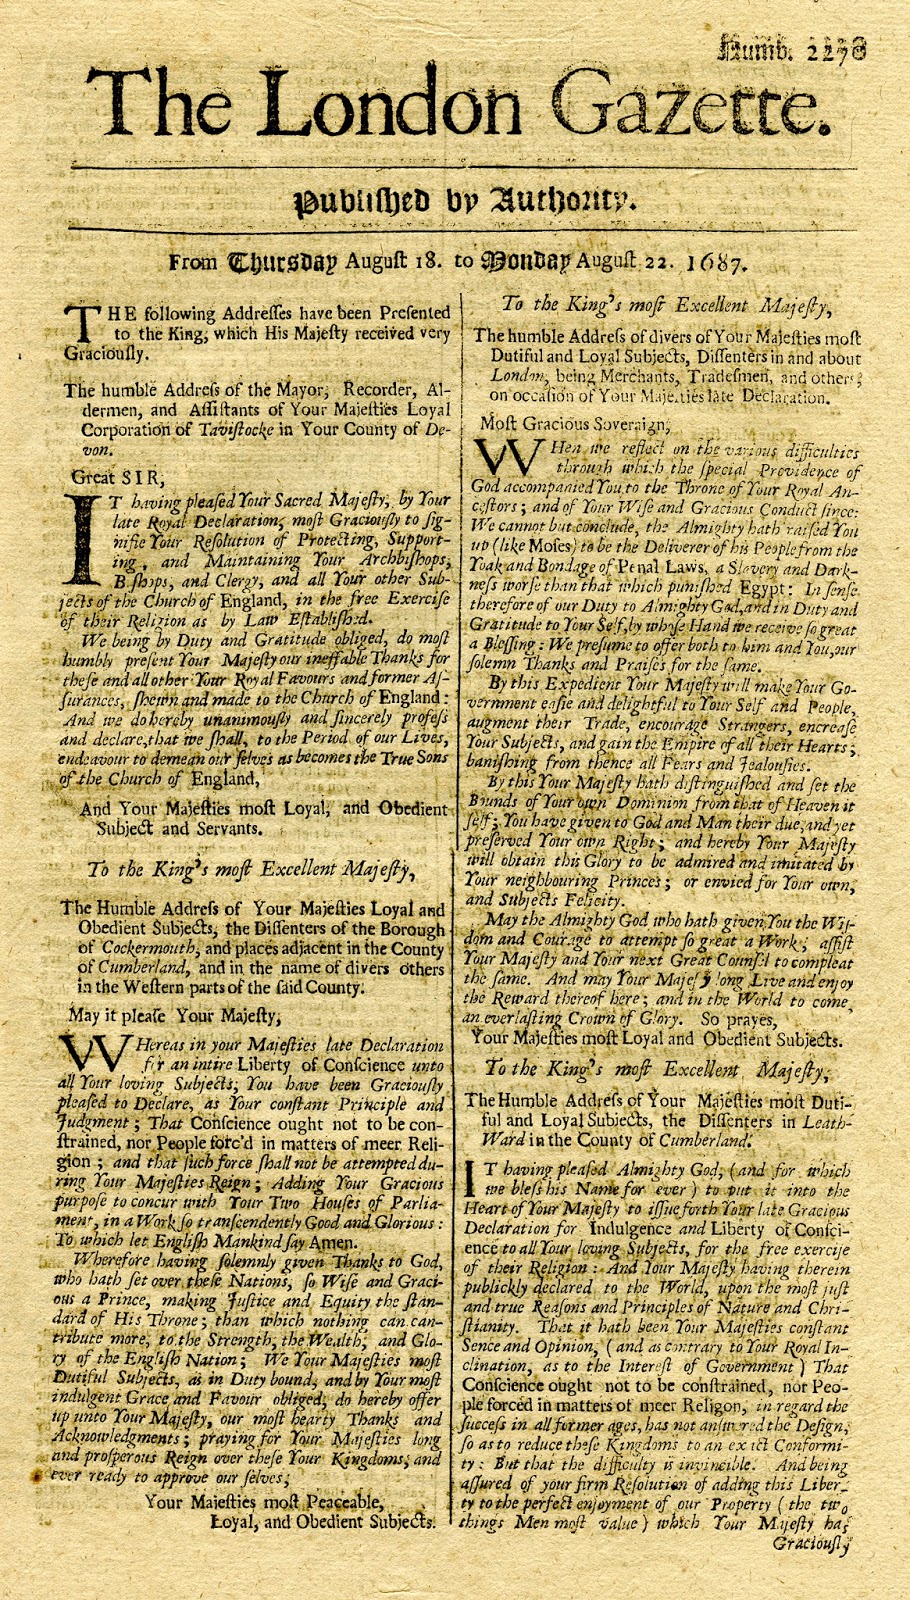 Numb. 2270
The London Gazette.
Published by Authority.
From Thursday August 18. to Monday August 22. 1687.
THE following Addresses have been Presented
to the King, which His Majesty received very
Graciously.
The humble Address of the Mayor, Recorder, Al-
dermen, and Assistants of Your Majesties Loyal
Corporation of Tavistocke in Your County of De-
von.
Great SIR,
IT having pleased Your Sacred Majesty, by Your
late Royal Declaration, most Graciously to sig-
nifie Your Resolution of Protecting, Support-
ing, and Maintaining Your Archbishops,
Bishops, and Clergy, and all Your other Sub-
jects of the Church of England, in the free Exercise
of their Religion as by Law Established.
We being by Duty and Gratitude obliged, do most
humbly present Your Majesty our ineffable Thanks for
these and all other Your Royal Favours and former As-
surances, shewn and made to the Church of England:
And we do hereby unanimously and sincerely profess
and declare, that we shall, to the Period of our Lives,
endeavour to demean our selves as becomes the True Sons
of the Church of England,
And Your Majesties most Loyal, and Obedient
Subject and Servants.
To the King's most Excellent Majesty,
The Humble Address of Your Majesties Loyal and
Obedient Subjects, the Dissenters of the Borough
of Cockermouth, and places adjacent in the County
of Cumberland, and in the name of divers others
in the Western parts of the said County.
May it please Your Majesty,
WHereas in your Majesties late Declaration
for an intire Liberty of Conscience unto
all Your loving Subjects, You have been Graciously
pleased to Declare, as Your constant Principle and
Judgment; That Conscience ought not to be con-
strained, nor People forc'd in matters of meer Reli-
gion; and that such force shall not be attempted du-
ring Your Majesties Reign; Adding Your Gracious
purpose to concur with Your Two Houses of Parlia-
ment, in a Work so transcendently Good and Glorious:
To which let English Mankind say Amen.
Wherefore having solemnly given Thanks to God,
who hath set over these Nations, so Wise and Graci-
ous a Prince, making Justice and Equity the stan-
dard of His Throne; than which nothing can con-
tribute more, to the Strength, the Wealth, and Glo-
ry of the English Nation; We Your Majesties most
Dutiful Subjects, as in Duty bound, and by Your most
indulgent Grace and Favour obliged, do hereby offer
up unto Your Majesty, our most hearty Thanks and
Acknowledgments; praying for Your Majesties long
and prosperous Reign over these Your Kingdoms, and
ever ready to approve our selves,
Your Majesties most Peaceable,
Loyal, and Obedient Subjects.
To the King's most Excellent Majesty,
The humble Address of divers of Your Majesties most
Dutiful and Loyal Subjects, Dissenters in and about
London, being Merchants, Tradesmen, and others,
on occasion of Your Majesties late Declaration.
Most Gracious Soveraign,
WHen we reflect on the various difficulties
through which the special Providence of
God accompanied You to the Throne of Your Royal An-
cestors; and of Your Wise and Gracious Conduct since:
We cannot but conclude, the Almighty hath raised You
up (like Moses) to be the Deliverer of his People from the
Yoak and Bondage of Penal Laws, a Slavery and Dark-
ness worse than that which punished Egypt: In sense
therefore of our Duty to Almighty God, and in Duty and
Gratitude to Your Self, by whose Hand we receive so great
a Blessing: We presume to offer both to him and You, our
solemn Thanks and Praises for the same.
By this Expedient Your Majesty will make Your Go-
vernment easie and delightful to Your Self and People,
augment their Trade, encourage Strangers, encrease
Your Subjects, and gain the Empire of all their Hearts;
banishing from thence all Fears and Jealousies.
By this Your Majesty hath distinguished and set the
Bounds of Your own Dominion from that of Heaven it
self; You have given to God and Man their due, and yet
preserved Your own Right; and hereby Your Majesty
will obtain this Glory to be admired and imitated by
Your neighbouring Princes; or envied for Your own,
and Subjects Felicity.
May the Almighty God who hath given You the Wis-
dom and Courage to attempt so great a Work; assist
Your Majesty and Your next Great Counsil to compleat
the same. And may Your Majesty long Live and enjoy
the Reward thereof here; and in the World to come,
an everlasting Crown of Glory. So prayes,
Your Majesties most Loyal and Obedient Subjects.
To the King's most Excellent Majesty,
The Humble Address of Your Majesties most Duti-
ful and Loyal Subjects, the Dissenters in Leath-
Ward in the County of Cumberland.
IT having pleased Almighty God, (and for which
we bless his Name for ever) to put it into the
Heart of Your Majesty to issue forth Your late Gracious
Declaration for Indulgence and Liberty of Consci-
ence to all Your loving Subjects, for the free exercise
of their Religion: And Your Majesty having therein
publickly declared to the World, upon the most just
and true Reasons and Principles of Nature and Chri-
stianity. That it hath been Your Majesties constant
Sence and Opinion, (and as contrary to Your Royal In-
clination, as to the Interest of Government) That
Conscience ought not to be constrained, nor Peo-
ple forced in matters of meer Religon, in regard the
success in all former ages, has not answered the Design,
so as to reduce these Kingdoms to an exact Conformi-
ty: But that the difficulty is invincible. And being
assured of your firm Resolution of adding this Liber-
ty to the perfect enjoyment of our Property (the two
things Men most value) which Your Majesty has
Graciously